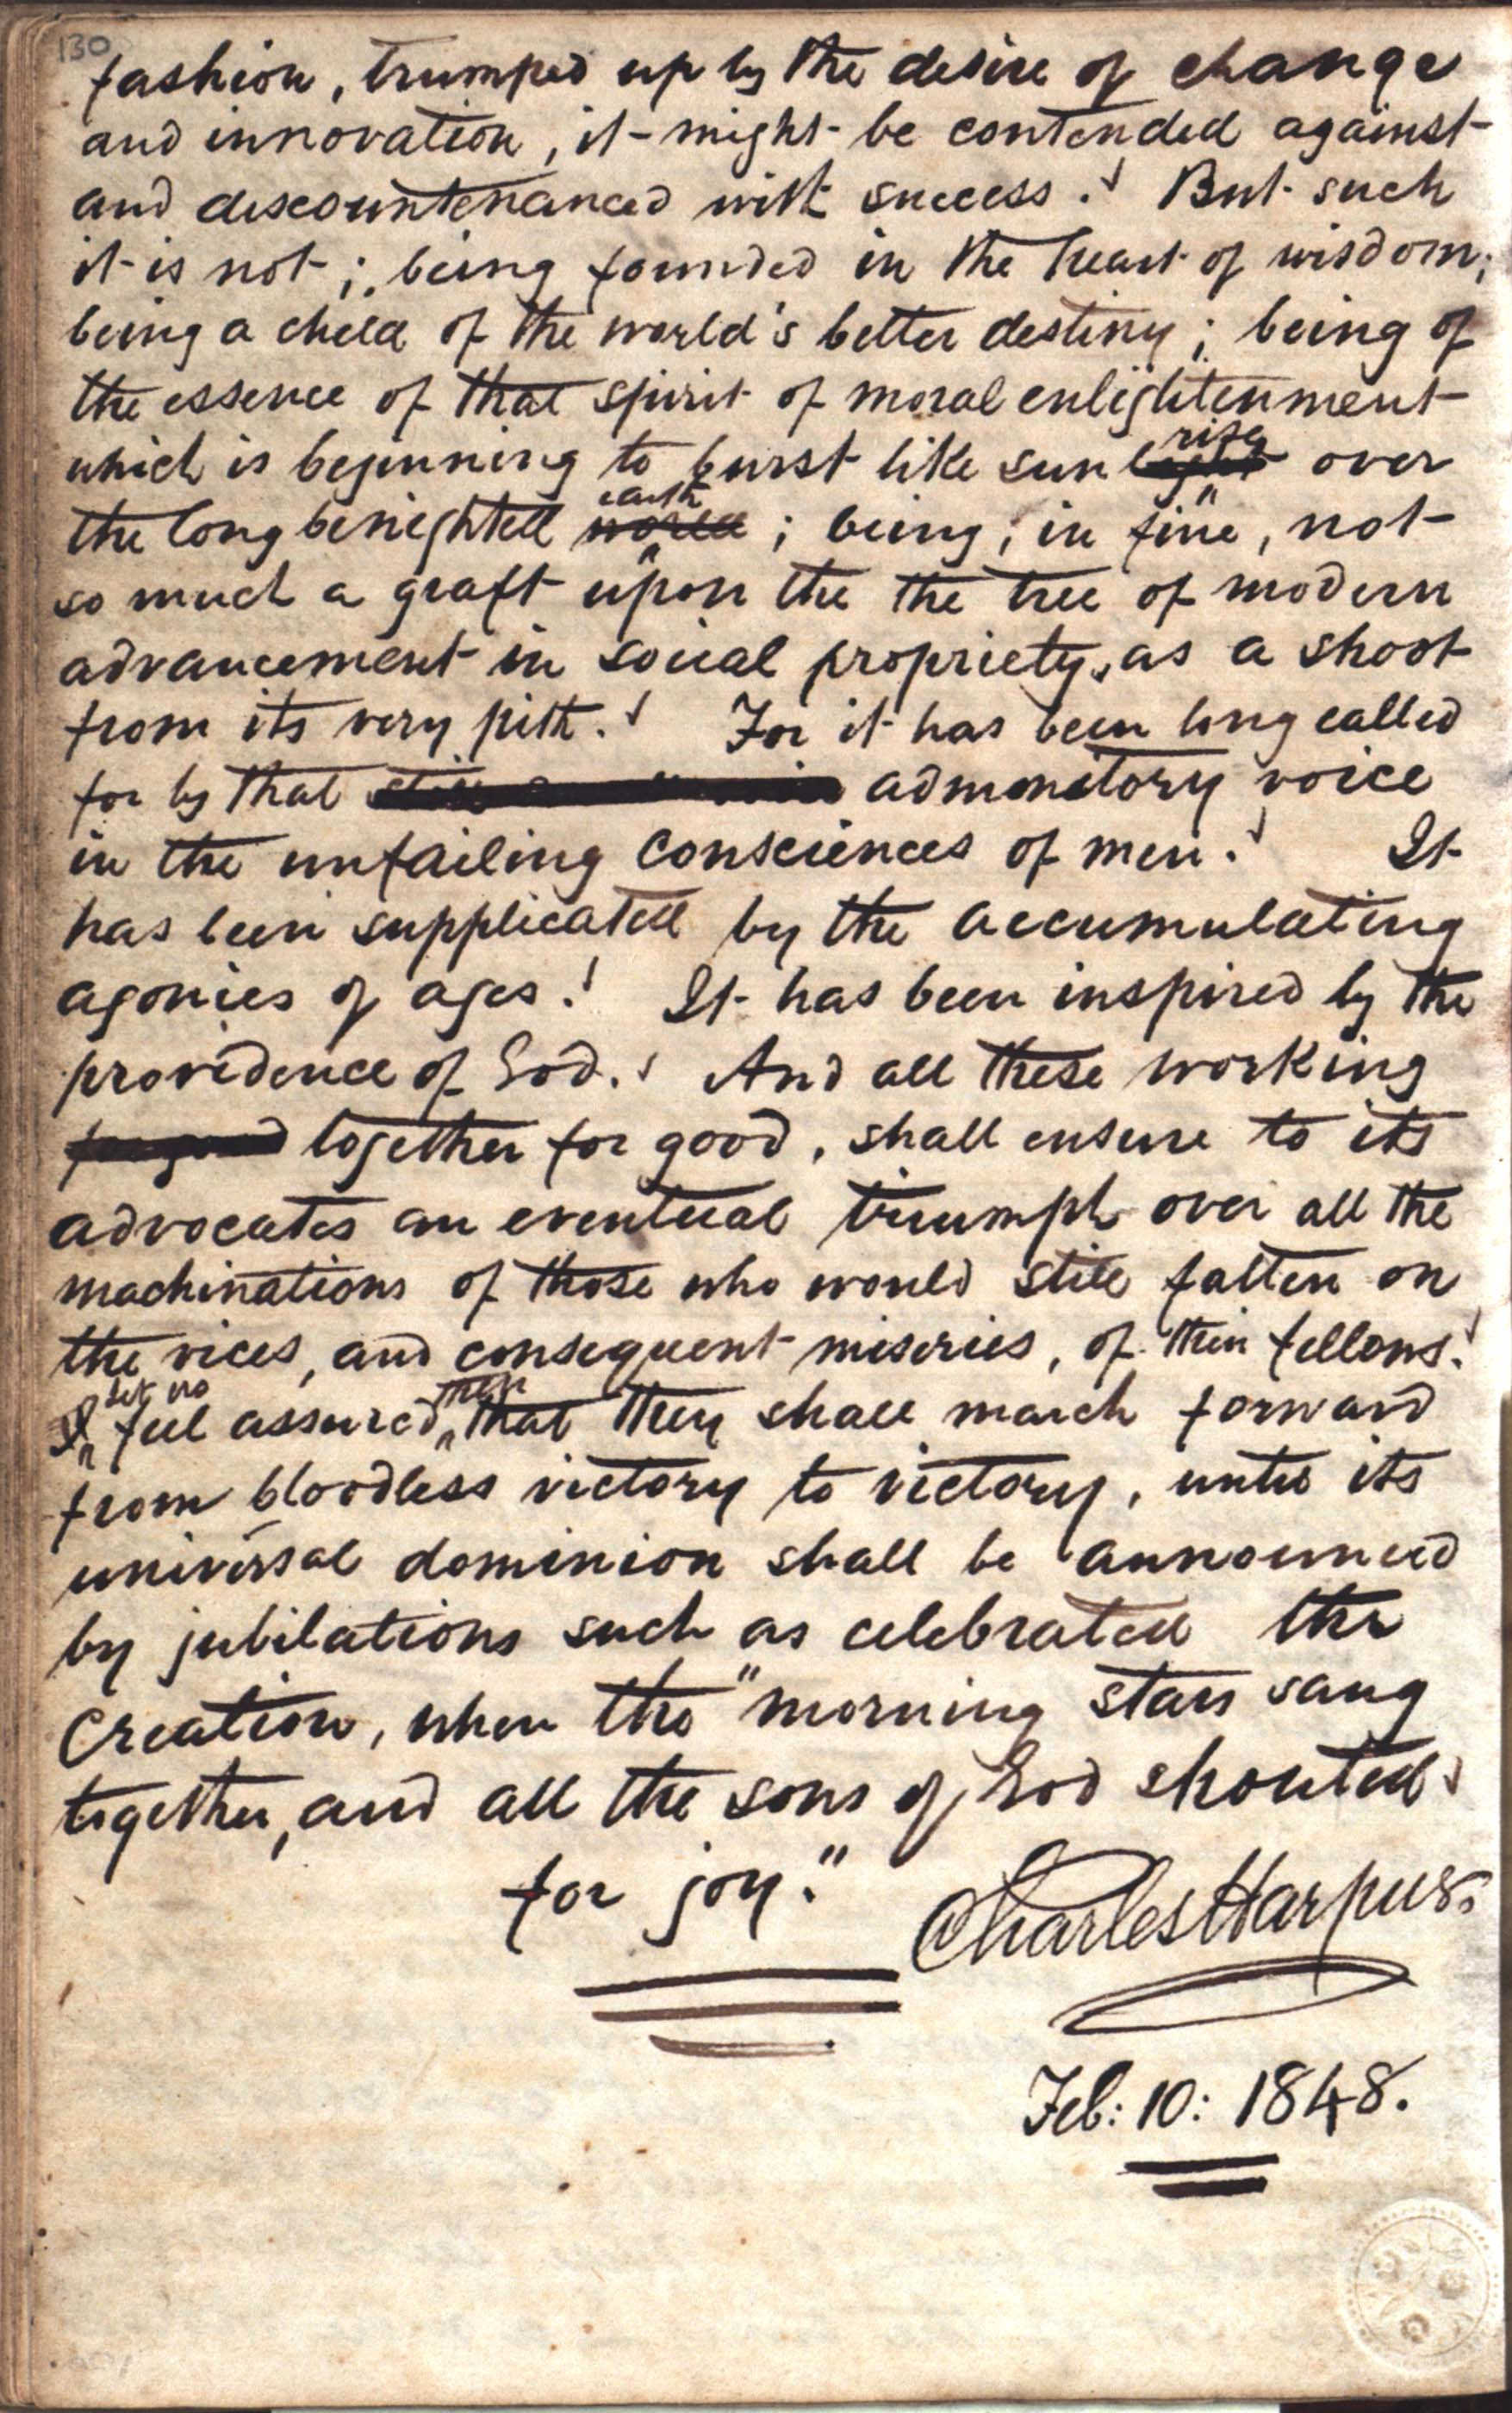 130
fashion, trumped up by the desire of change
and innovation, it might be contended against
and discountenanced with success.! But such
it is not; being founded in the heart of wisdom;
being a child of the world's better destiny; being of
the essence of that spirit of moral enlightenment
which is beginning to burst like sun light rise over
the long benighted world earth; being, in fine, not
so much a graft upon the the tree of modern
advancement in social propriety, as a shoot
from its very pith.! For it has been long called
for by that still admonitory voice
in the unfailing consciences of men.! It
has been supplicated by the accumulating
agonies of ages.! It has been inspired by the
providence of God.! And all these working
for good together for good, shall ensure to its
advocates an eventual triumph over all the
machinations of those who would still fatten on
the vices, and consequent miseries, of their fellows.!
I feel assured, then that they shall march forward
from bloodless victory to victory, until its
universal dominion shall be announced
by jubilations such as celebrated the
Creation, when the "morning stars sang
together, and all the sons of God shouted
for joy." Charles Harpur.
Feb: 10: 1848.